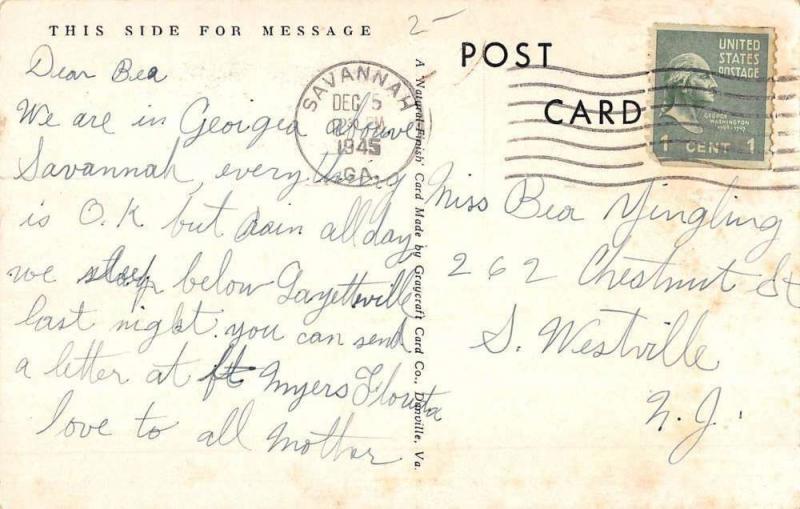 THIS SIDE FOR MESSAGE
2-
Dear Bea
We are in Georgea abouve
Savannah, everything
is O.K but Rain all day
we sleep below Fayetteville
last night. you can send
a letter at ft Myers Florida
love to all Mother
SAVANNAH
DEC 5
PM
1945
GA.
A 'Natural-Finish' Card Made by Graycraft Card Co., Danville, Va.
POST
CARD
UNITED
STATES
POSTAGE
GEORGE
WASHINGTON
1789-1797
1 CENT 1
Miss Bea Yingling
262 Chestnut St
S. Westville
N.J.